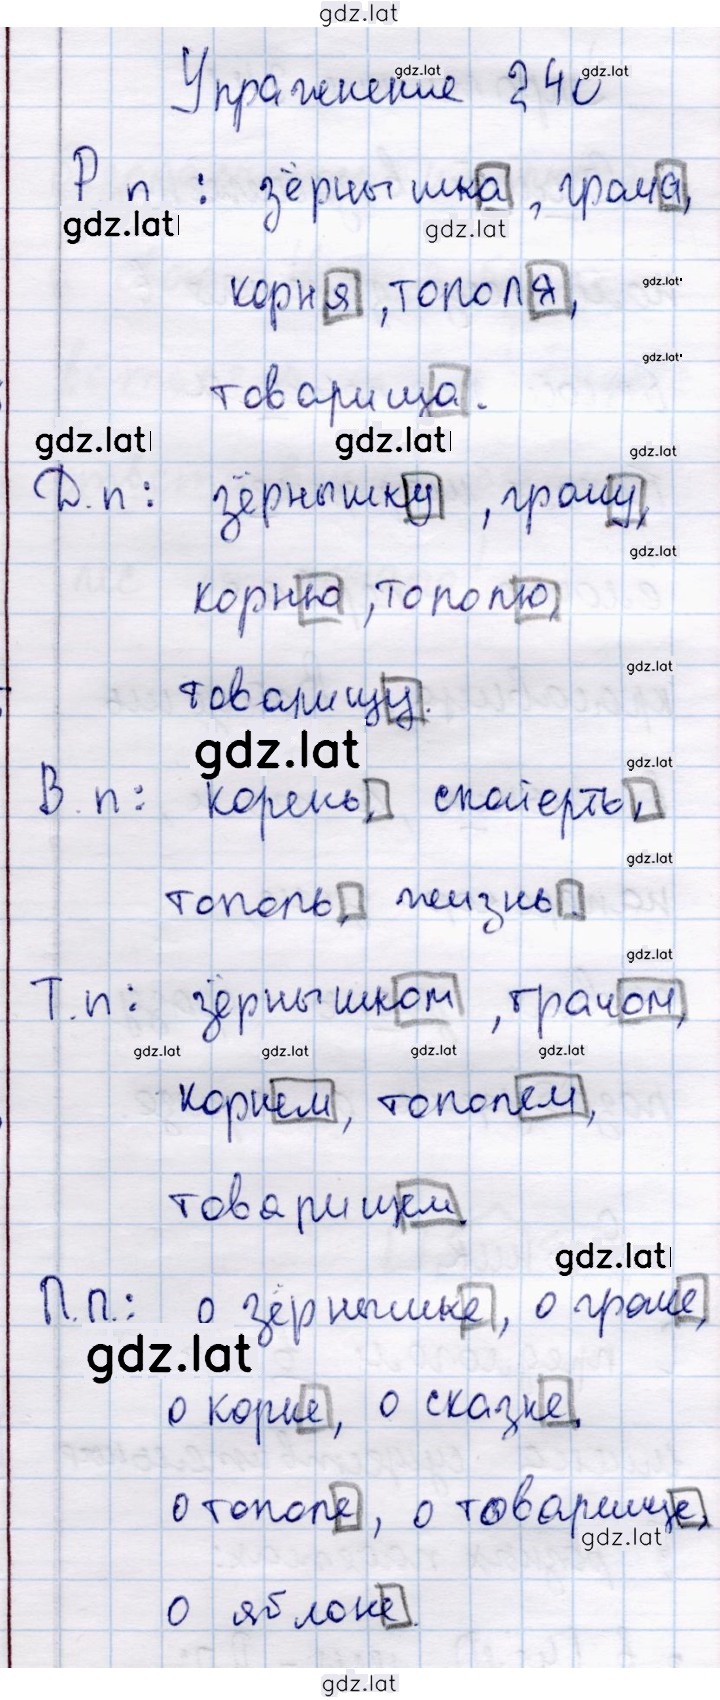 gdz.lat
Упражнение 240
gdz.lat gdz.lat
Р. п: зёрнышка, грача,
gdz.lat gdz.lat
корня, тополя,
gdz.lat
товарища.
gdz.lat
gdz.lat gdz.lat gdz.lat
Д.п: зёрнышку, грачу,
gdz.lat
корню, тополю,
gdz.lat
товарищу.
gdz.lat gdz.lat
В.п: корень, скатерть,
gdz.lat
тополь, жизнь.
gdz.lat
Т.п: зёрнышком, грачом,
gdz.lat gdz.lat gdz.lat gdz.lat
корнем, тополем,
товарищем.
gdz.lat
П.п.: о зёрнышке, о граче,
gdz.lat
о корне, о сказке,
о тополе, о товарище,
gdz.lat
о яблоке.
gdz.lat